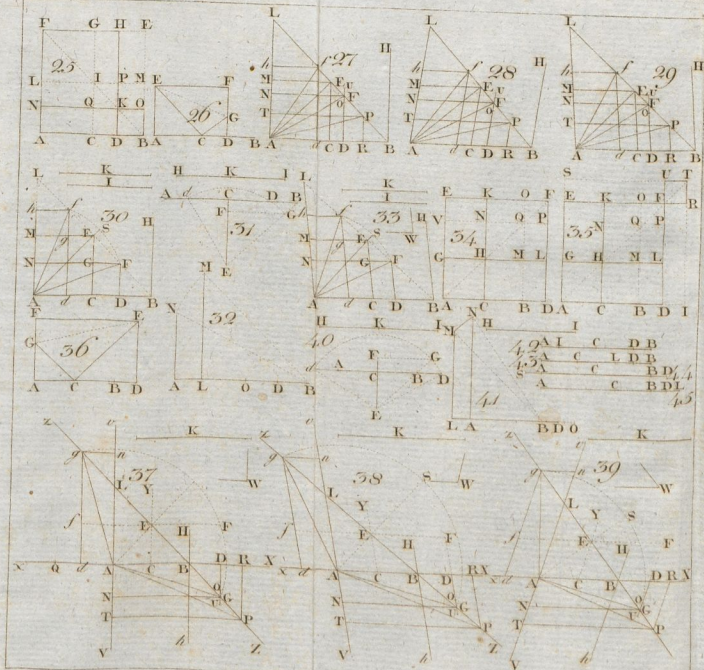 F G H E
25
L I P M
N Q K O
A C D B
E F
26
G
A C D B
L
27
H
h f
M E U
N F
O
T P
A d C D R B
L
28
H
h f
M E U
N F
O
T P
A d C D R B
L
29
H
h f
M E U
N F
O
T P
A d C D R B
L K
I
30
h f
M g E S H
N G F
A d C D B
H K I
A d C D B
F G
31
E
M
N
32
A L O D B
L K
I
33
h f H
M g E S W
N G F
A d C D B
E K O F
V N Q P
34
G H M L
A C B D
S U T
E K O F R
N Q P
35
G H M L
A C B D I
F E
G
36
A C B D
H K I
40
F G
d A C B D
E
M N H I
41
L A B D O
42 A I C D B
43 A C L D B
S A C B D 44
A C B D L 45
z v K
g n
37
L Y W
f E H F
x Q d A C B D R X
N O G
T U P
V h Z
z v K
g n
38
L Y S W
f E H F
x d A C B D R X
N O G
T U P
V h Z
z v K
g n
39
L Y S W
f E H F
x d A C B D R X
N O G
T U P
V h Z